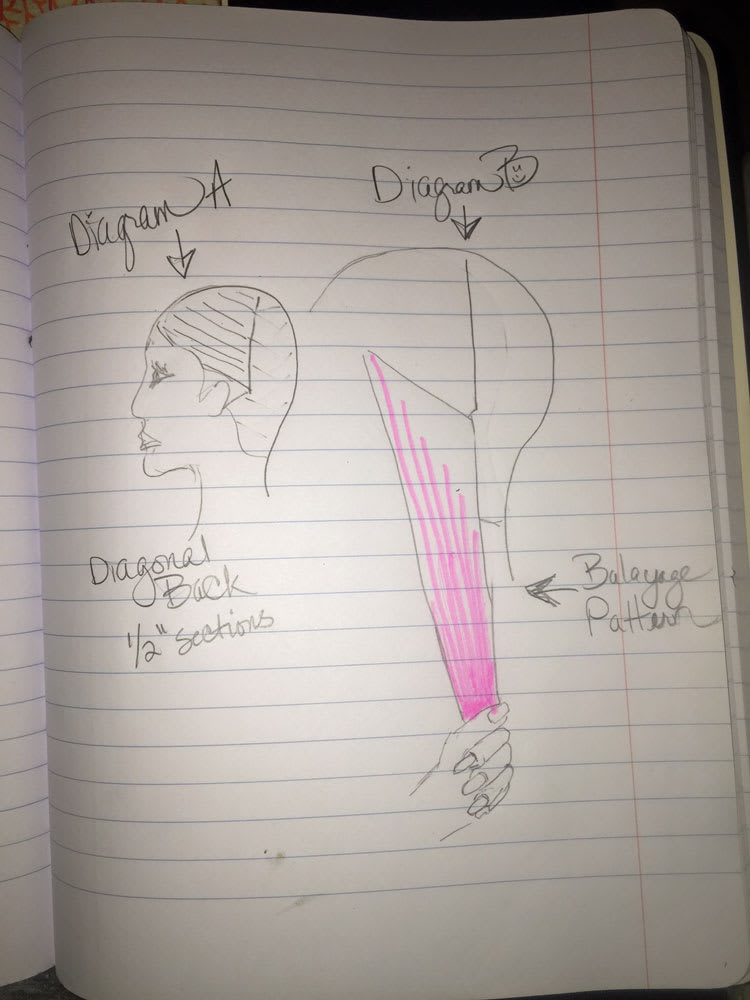 Diagram A
Diagram B
Diagonal
Back
1/2" sections
Balayage
Pattern